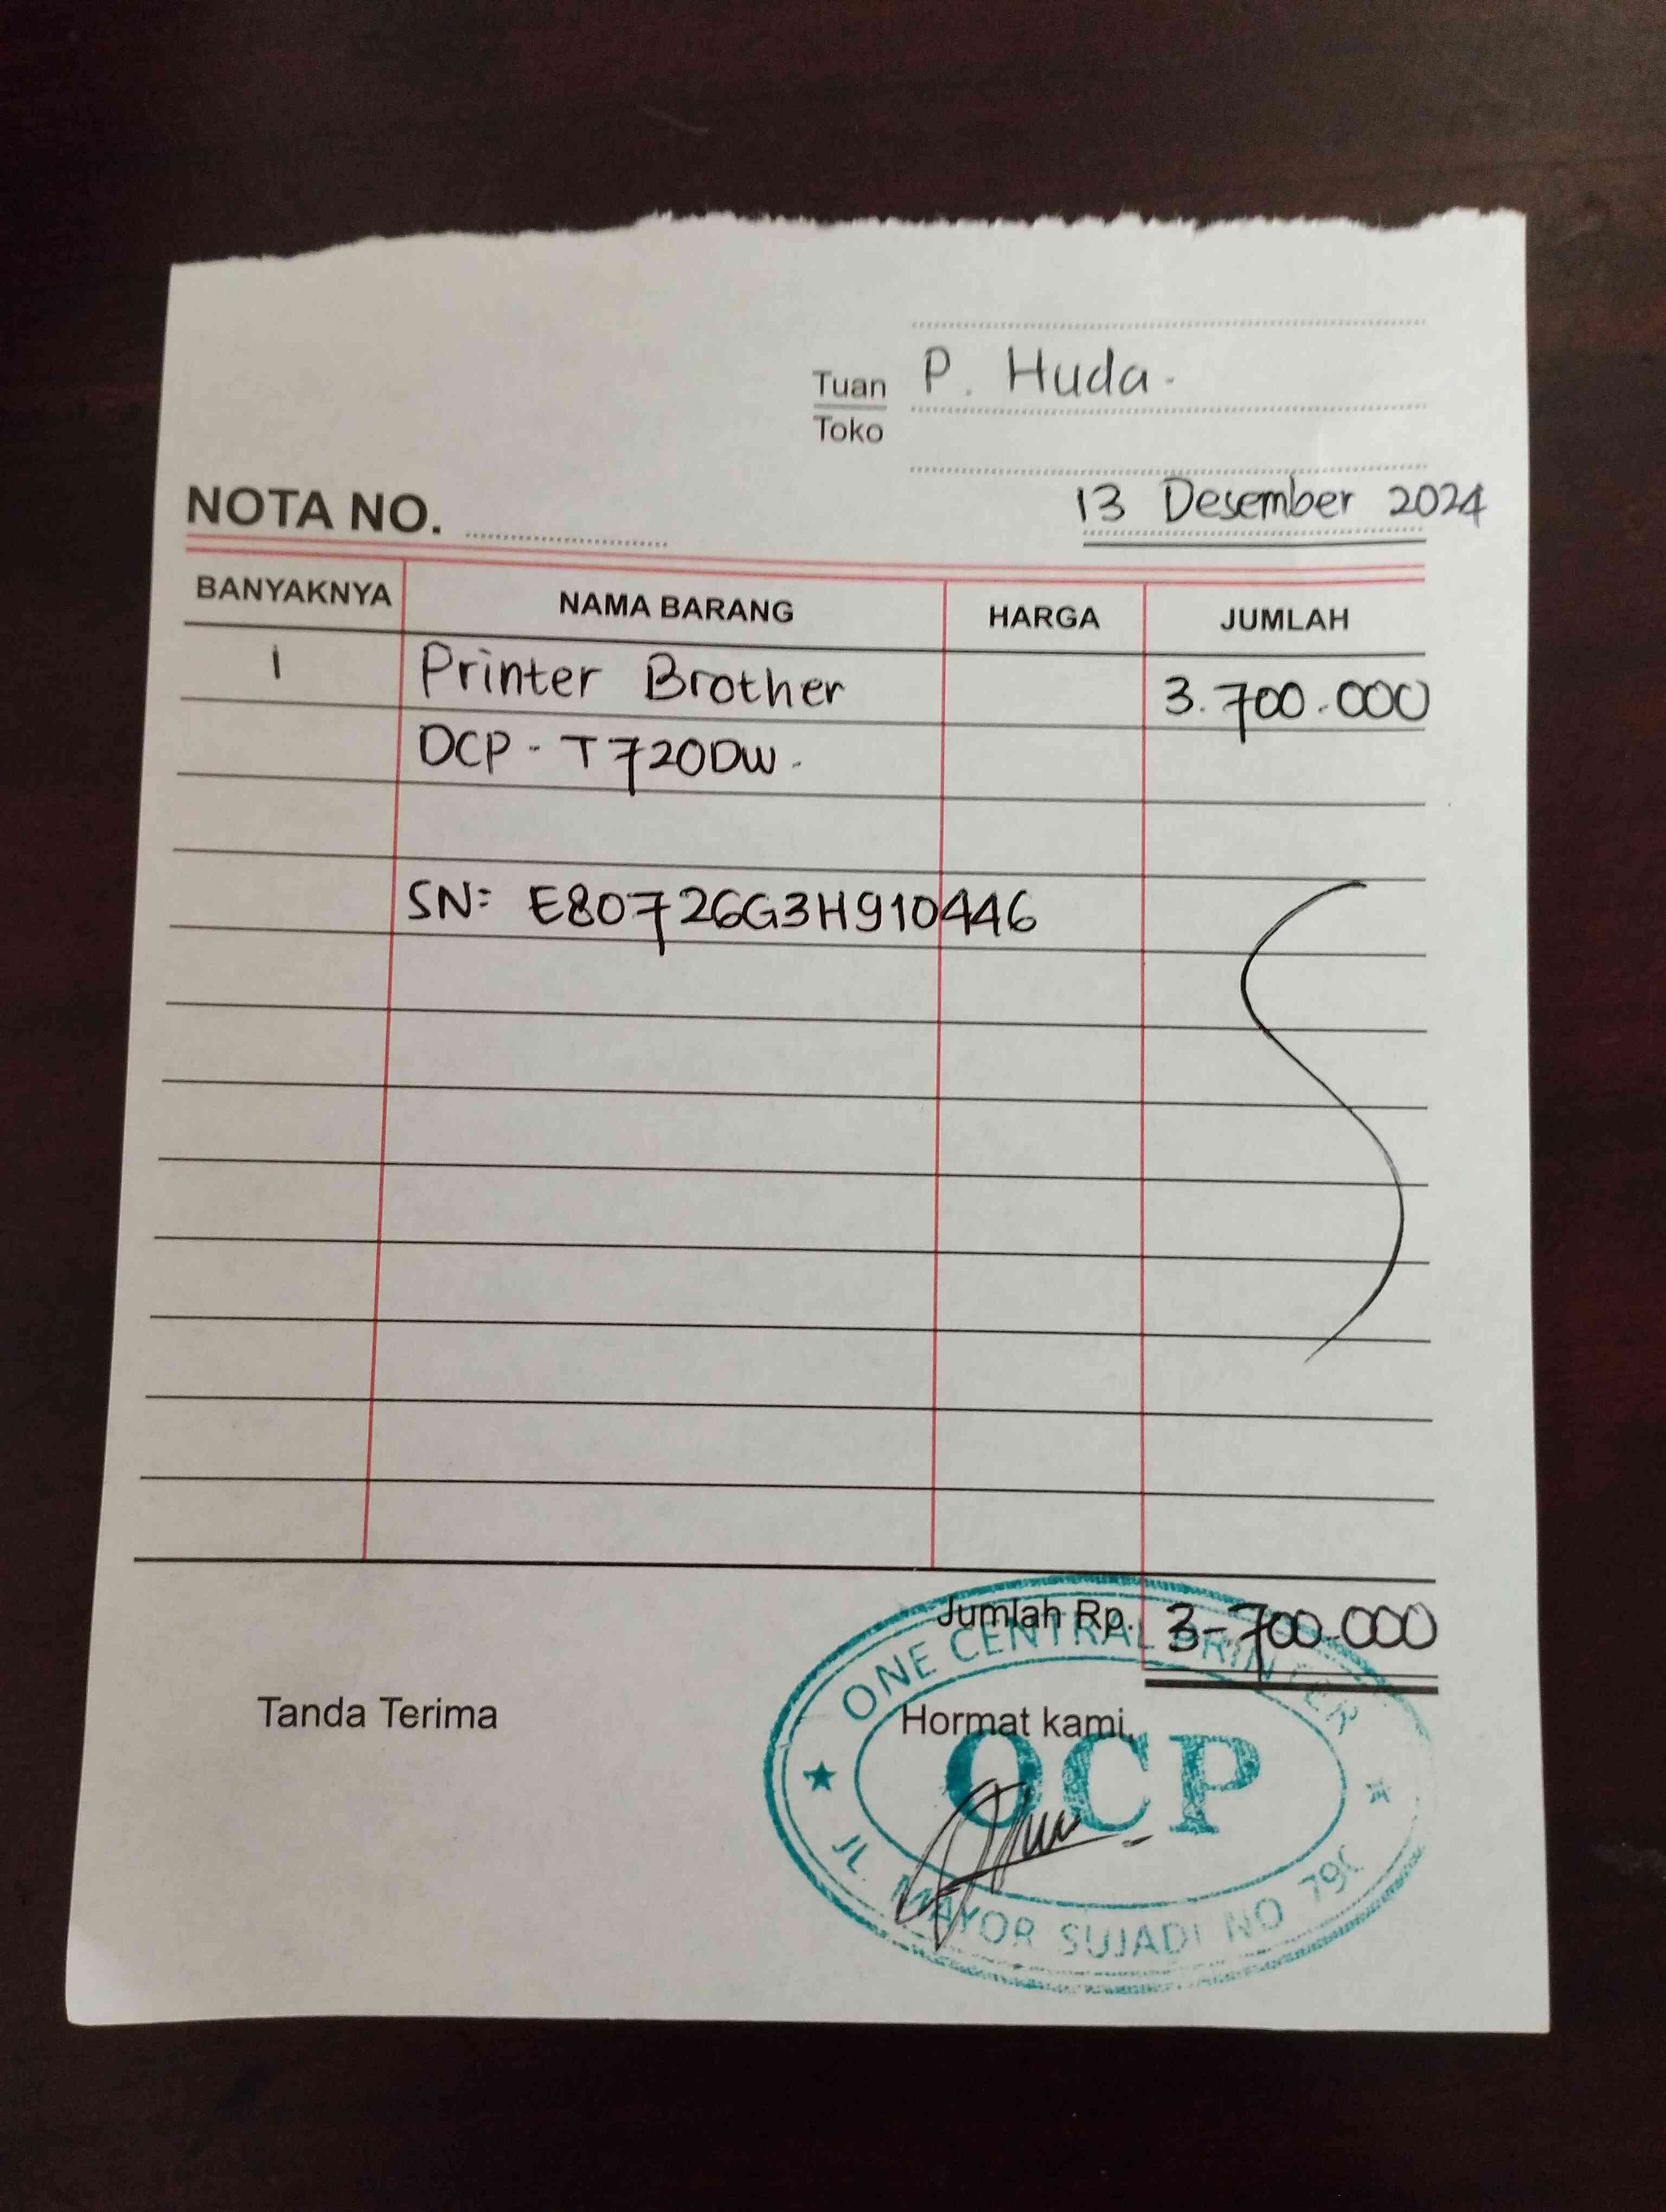 Tuan P. Huda.
Toko
NOTA NO.
13 Desember 2024
BANYAKNYA NAMA BARANG HARGA JUMLAH
1 Printer Brother 3.700.000
DCP - T720DW.
SN: E80726G3H910446
Jumlah Rp. 3.700.000
Tanda Terima
Hormat kami,
ONE CENTRAL PRINTER
OCP
JL. MAYOR SUJADI NO